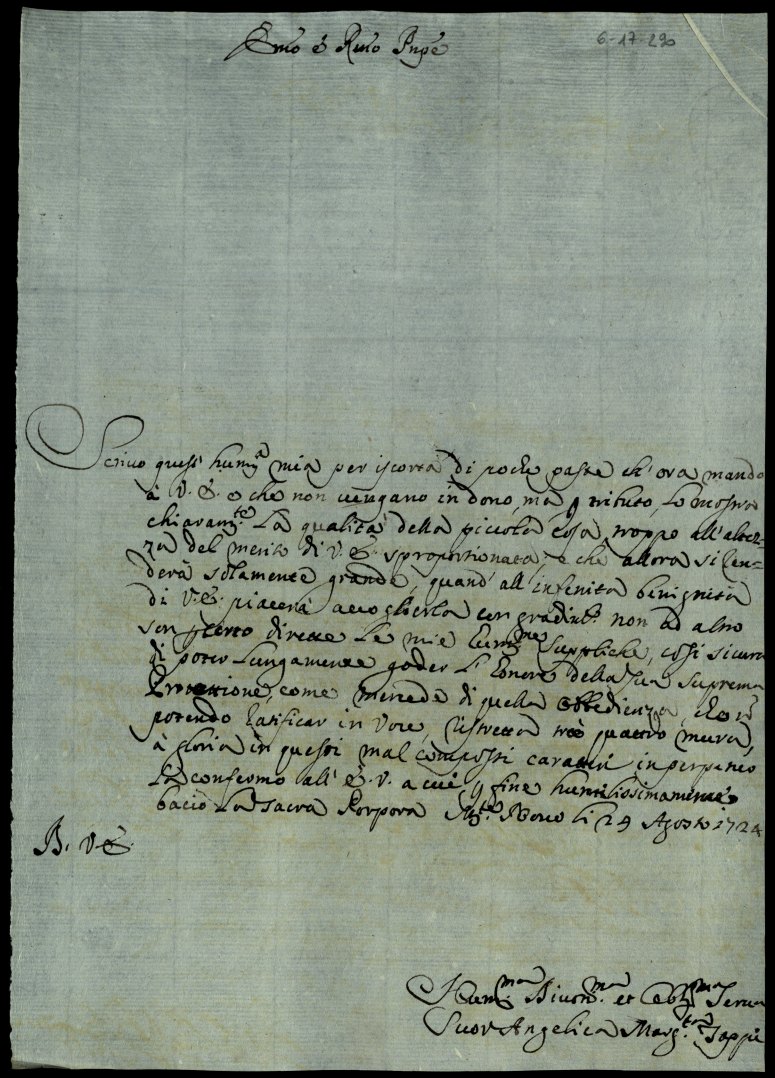 Emo é Rmo Prnpe
6-17-290
Scrivo quest' humª mia per iscorta di poche paste ch' ora mando
à V. E. e che non vengano in dono, mà p tributo, lo mostra
chiaramte. la qualità della piccola cosa, troppo all' altez=
za del merito di V. E. sproportionata, e chè allora si ren=
derà solamente grande, quand' all' infenita benignità
di V. E. piacerà accoglierla con gradimto. non ad altro
son dirette le mie humme suppliche, cosi sicura
di poter lungamente goder l' honore della sua suprema
Protettione, come mercede di quella obbedienza, che nō
potendo ratificar in voce, ristretta trà quattro mura,
à gloria in questi mal composti caratteri in perpetuo
la confermo all' E. V. a cui p fine humilissimamente
bacio la sacra Porpora li 24 Agosto 1724
B. V. E.
Humma Divonma et Obblma Serva
Suor Angelica Margta